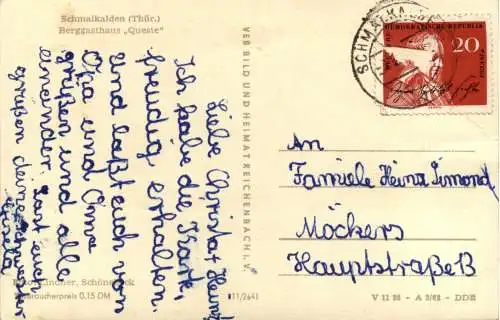 Schmalkalden (Thür.)
Berggasthaus „Queste"
Liebe Christa + Heinz
Ich habe die Karte,
freudig erhalten.
und laßt euch von
Opa und Oma
grüßen und alle
einander. Last euch
grüßen deine Schwester
Gisela
Foto Lindner, Schöne
Verbraucherpreis 0.15 DM
11/2641
VEB BILD UND HEIMAT REICHENBACH I. V.
SCHMALKA
DEMOKRATISCHE REPUBLIK
20
An
Familie Heinz Simon
Möckers
HauptstraßeB
V 11 28 - A 3/62 - DDR